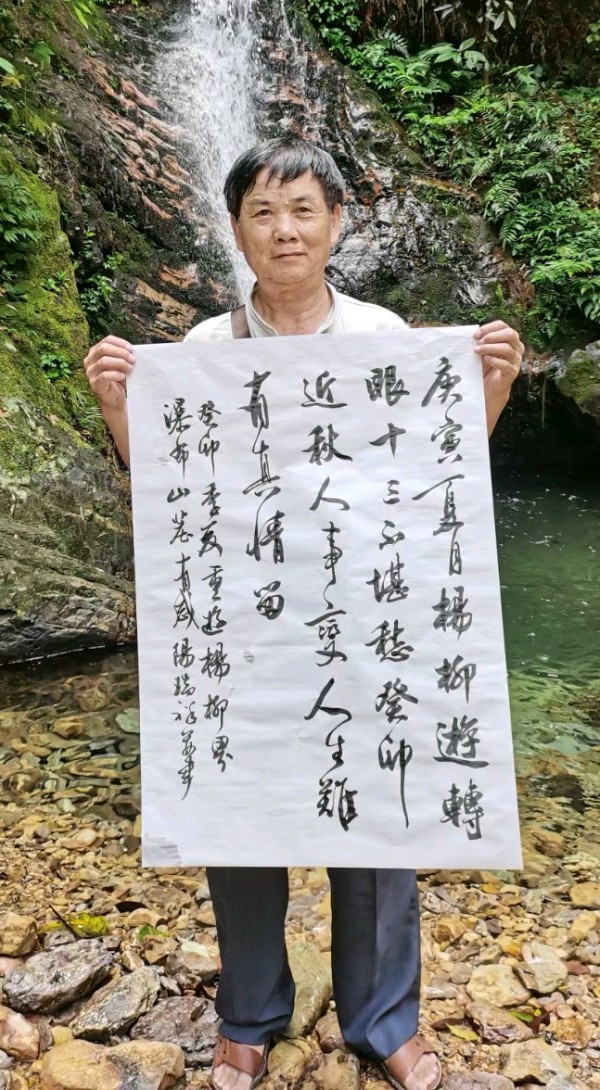 庚寅夏月楊柳遊轉
眼十三不堪愁癸卯
近秋人事變人生難
有真情留
癸卯季夏重遊楊柳界
瀑布山莊有感陽瑞祥書